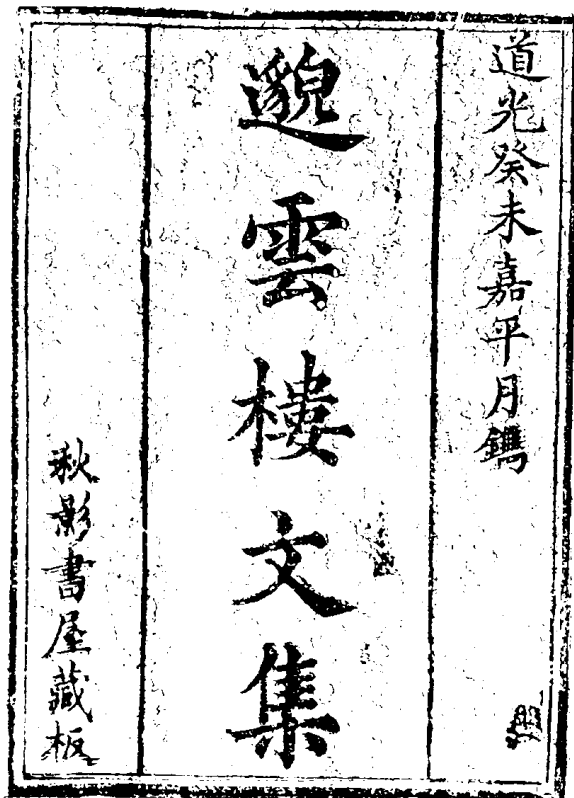 道光癸未嘉平月鐫
邈雲樓文集
秋影書屋藏板